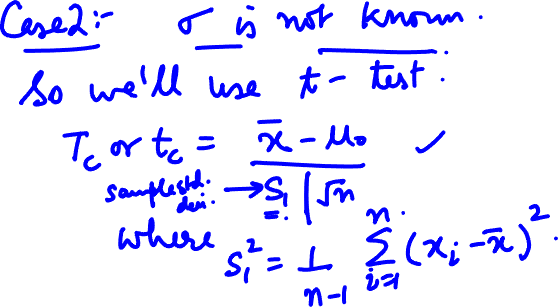 Case 2:- σ is not known.
So we'll use t-test.
Tc or tc = x̄ - μ₀ ✓
sample std. devi. → S₁ / √n
where S₁² = 1/(n-1) Σᵢ₌₁ⁿ (xᵢ - x̄)².